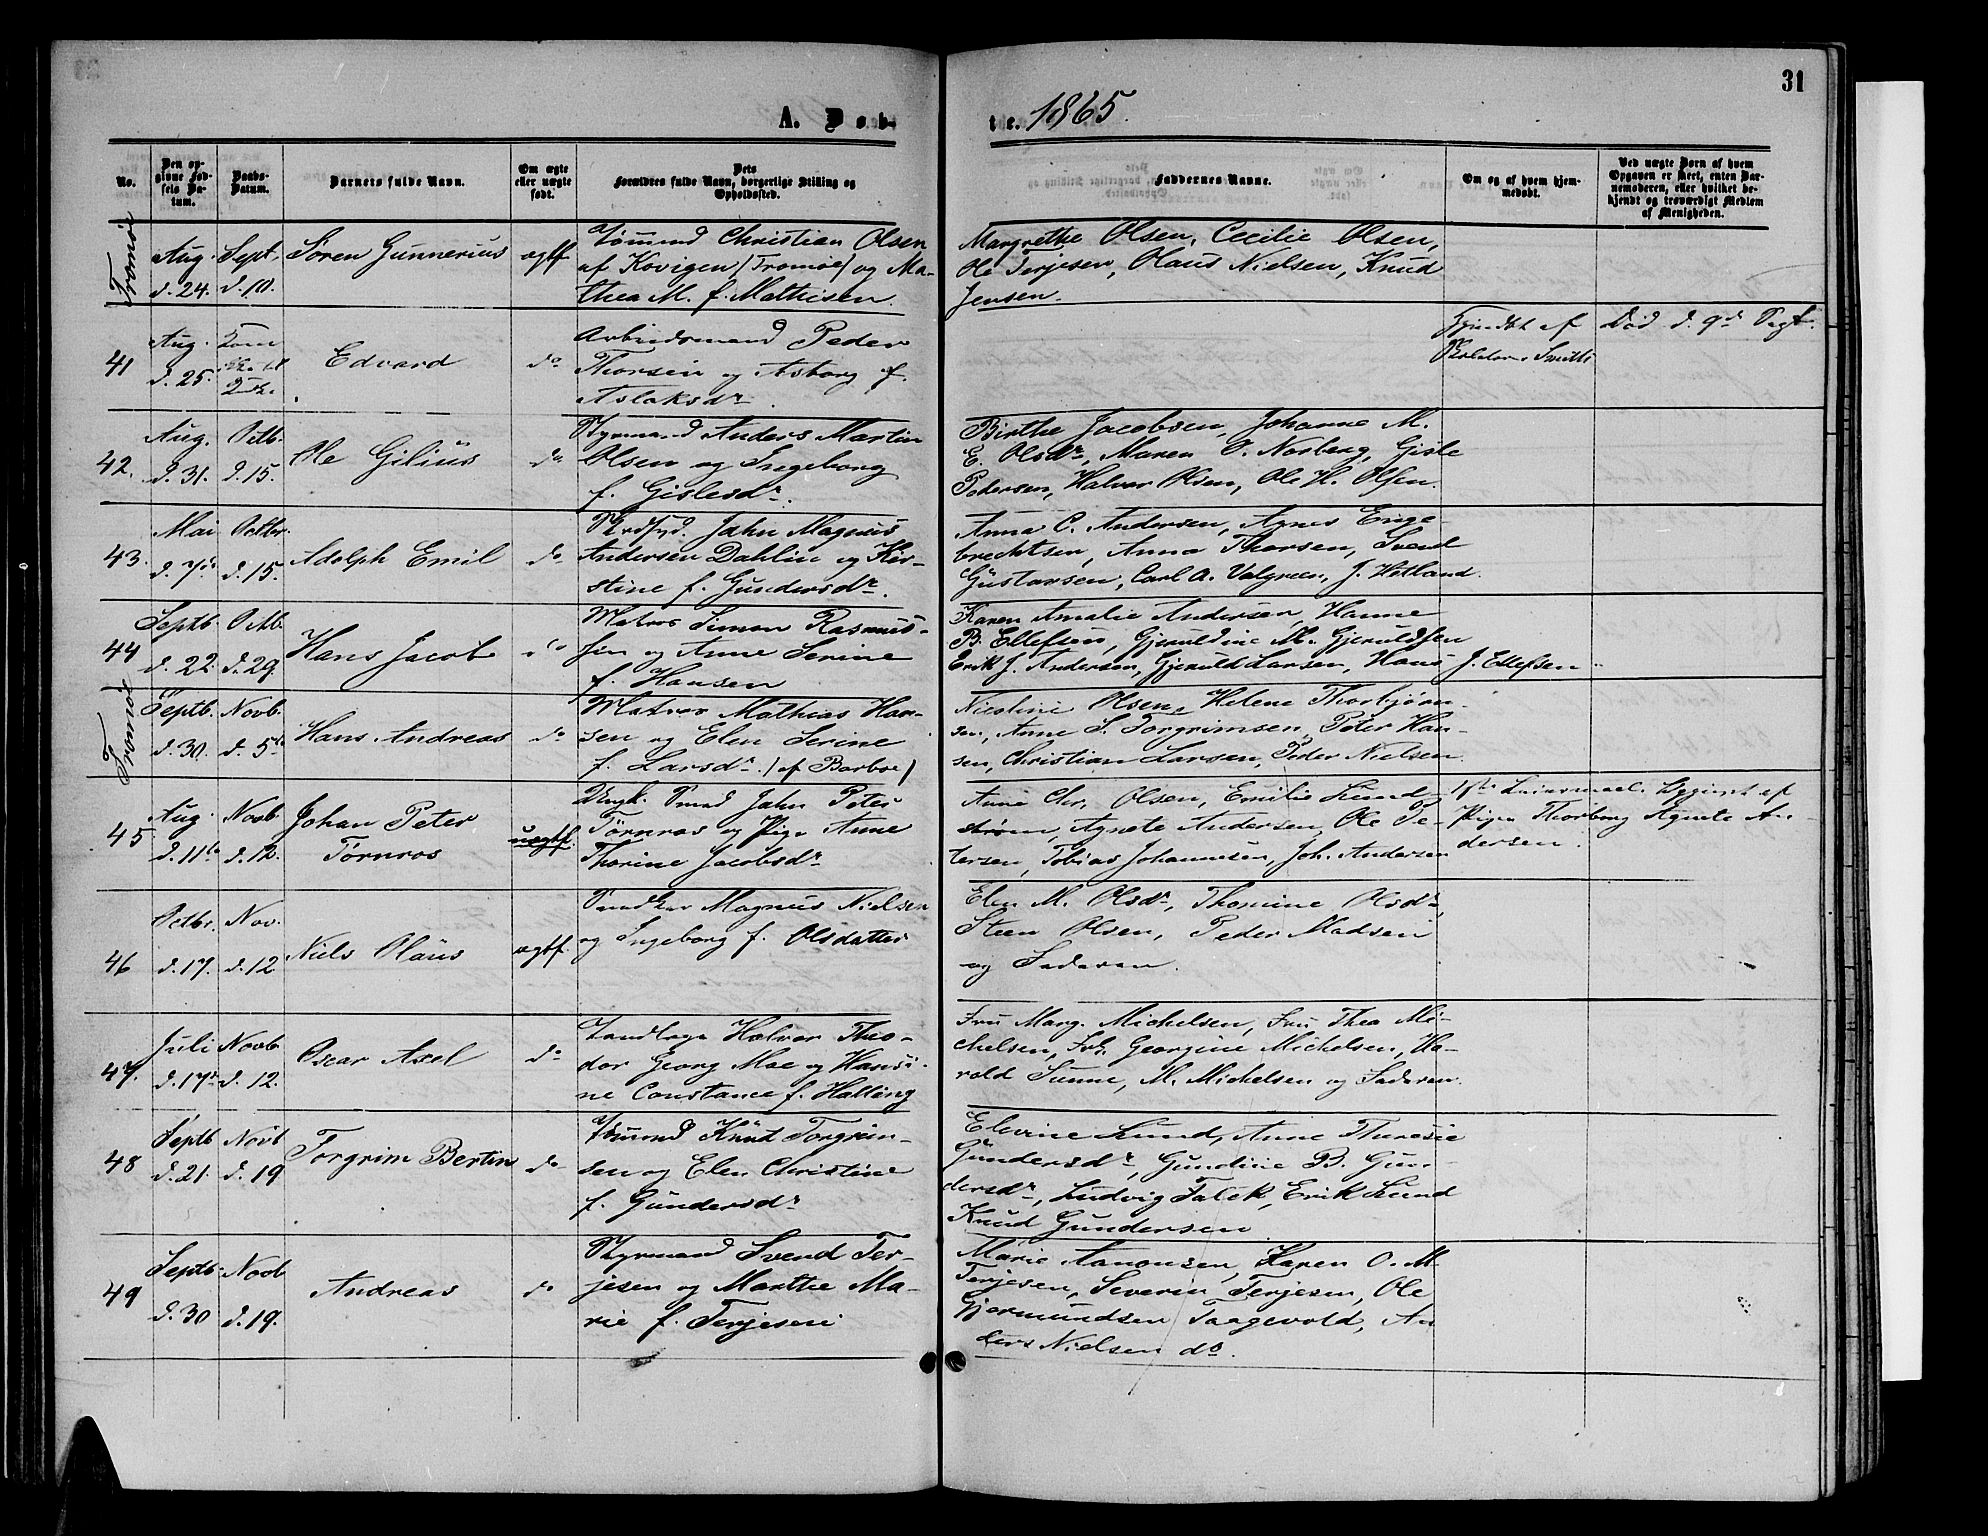 31
A. Døb-
te. 1865.
No.
Den op-
givne Fød-
sels Da-
tum.
Daabs-
Datum.
Barnets fulde Navn.
Om ægte
eller uægte
født.
Dets
Forældres fulde Navn, borgerlige Stilling og
Opholdssted.
Faddernes Navne.
Om og af hvem hjem-
medøbt.
Ved uægte Børn af hvem
Opgaven er skeet, enten Bar-
nemoderen, eller hvilket be-
kjendt og troværdigt Medlem
af Menigheden.
Tromøe
Aug.
d. 24.
Sept.
d. 10.
Søren Gunnerius
ægtf.
Sømand Christian Olsen
af Kovigen (Tromøe) og Ma-
thea M. f. Mathisen.
Margrethe Olsen, Cecilie Olsen,
Ole Terjesen, Olaus Nielsen, Knud
Jensen.
41
Aug.
d. 25.
Edvard
do
Arbeidsmand Peder
Thorsen og Asborg f.
Aslaksdr.
af
Smith
Død d. 9d Sept.
42.
Aug.
d. 31.
Octb.
d. 15.
Ole Gilius
do
Styrmand Anders Martin
Olsen og Ingeborg
f. Gislesdr.
Birthe Jacobsen, Johanne M.
E. Olsdr, Maren O. Norberg, Gisle
Pedersen, Halvor Olsen, Ole H. Olsen.
43.
Mai
d. 7de
Octbr.
d. 15.
Adolph Emil
do
John Magnus
Andersen Dahlin og Kir-
stine f. Gundersdr.
Anna C. Andersen, Agnes Enge-
brechtsen, Anna Thorsen, Svend
Gustavsen, Carl A. Valgreen, J. Hetland.
44
Septb.
d. 22.
Octb.
d. 29.
Hans Jacob
do
Matros Simon Rasmus-
sen og Anne Serine
f. Hansen
Karen Amalie Andersen, Hanne
B. Ellefsen, Gjeruldine M. Gjeruldsen
Erik J. Andersen, Gjeruld Larsen, Hans J. Ellefsen
Tromøe
Septb.
d. 30.
Novb.
d. 5te
Hans Andreas
do
Matros Mathias Han-
sen og Elen Serine
f. Larsdr. (af Barboe)
Nicoline Olsen, Helene Thorbjørn-
sen, Anne S. Torgrimsen, Peter Han-
sen, Christian Larsen, Peder Nielsen.
45
Aug.
d. 11te
Novb.
d. 12.
Johan Peter
Törnros
uægtf.
Ungk. Smed John Peter
Törnros og Pige Anne
Thorine Jacobsdr
Anne Chr. Olsen, Emilie Lund-
strøm, Agnete Andersen, Ole Pe-
tersen, Tobias Johannesen, Joh. Andersen
1ste Leiermaal. Opgivet af
Pige Thorborg Agnete An-
dersen.
46
Octbr.
d. 17.
Nov.
d. 12
Niels Olaus
ægtf.
Magnus Nielsen
og Ingeborg f. Olsdatter
Elen M. Olsdr, Thomine Olsdr,
Steen Olsen, Peder Madsen
og Faderen.
47.
Juli
d. 17de
Novb.
d. 12.
Oscar Axel
do
Halvor Theo-
dor Georg Moe og Hansi-
ne Constance f. Halling
Fru Marg. Michelsen, Fru Thea Mi-
chelsen, Frk. Georgine Michelsen, Ha-
rold Sunne, M. Michelsen og Faderen.
48
Septb
d. 21.
Novb
d. 19
Torgrim Bertin
do
Sømand Knud Torgrim-
sen og Elen Christine
f. Gundersdr
Elevine Lund, Anne Theresie
Gundersdr, Gundine B. Gun-
dersdr, Ludvig Falck, Erik Lund
Knud Gundersen
49
Septb.
d. 30
Novb
d. 19.
Andreas
do
Styrmand Svend Ter-
jesen og Marthe Ma-
rie f. Terjesen
Marie Aanonsen, Karen O. M.
Terjesen, Severin Terjesen, Ole
Gjermundsen Taagevold, An-
ders Nielsen do.